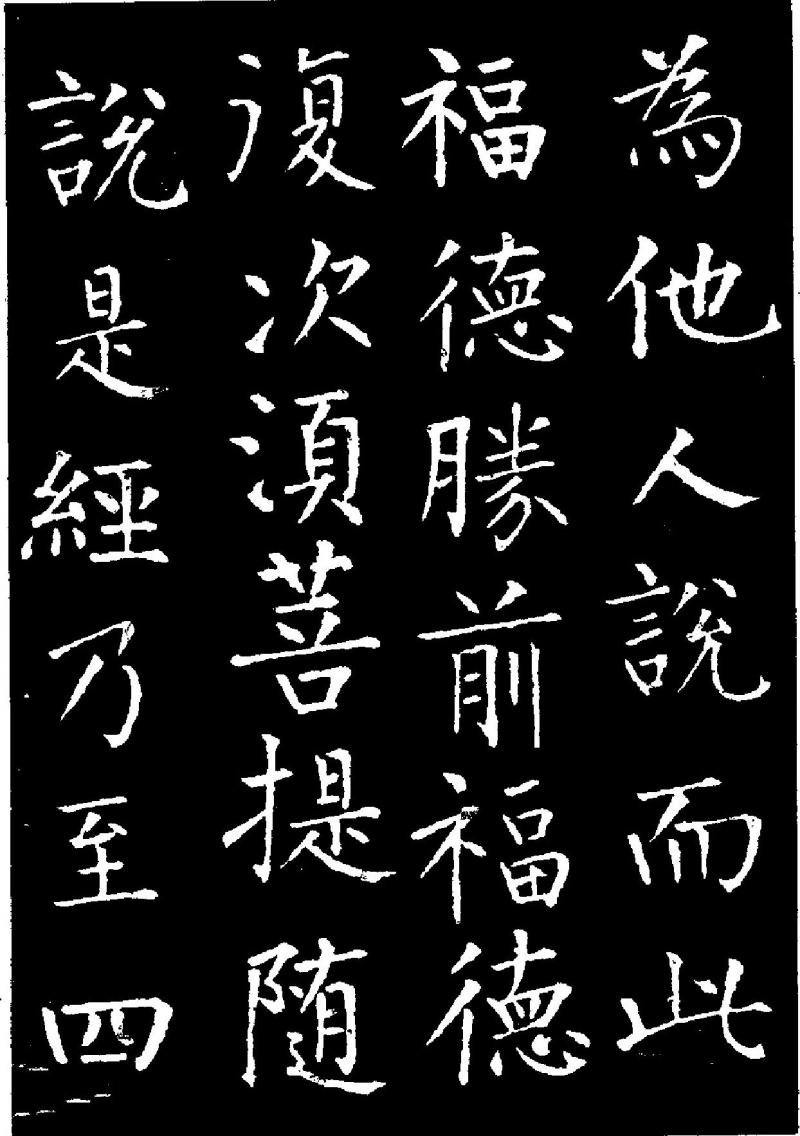 為他人說而此
福德勝前福德
復次須菩提随
說是經乃至四